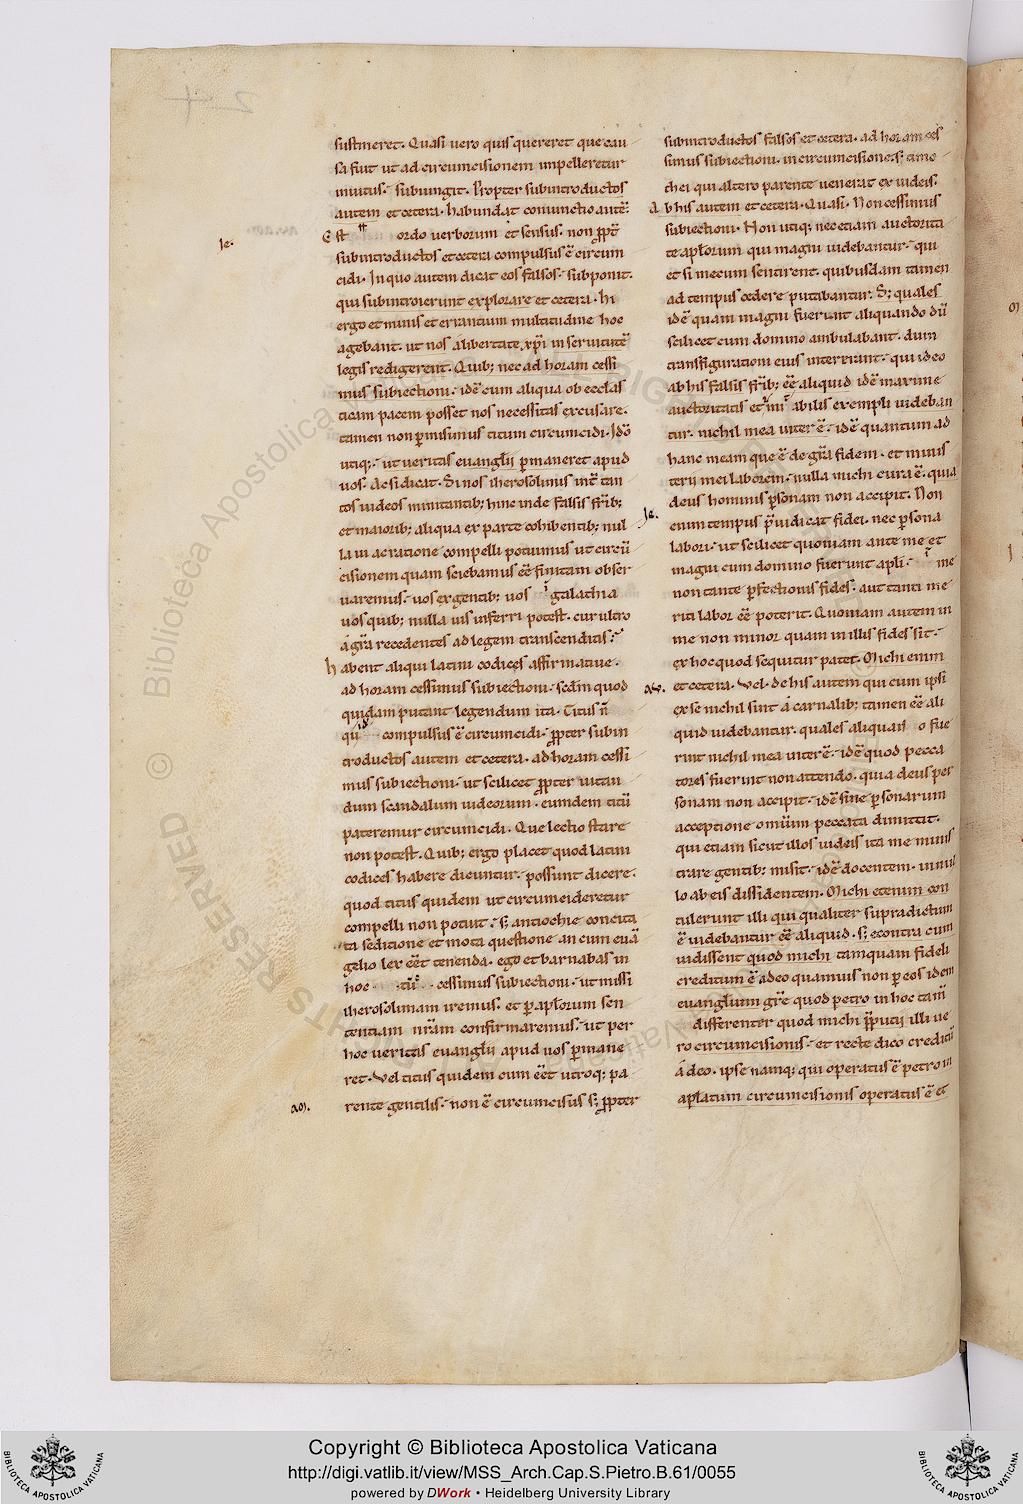 sustineret. Quasi uero quis quereret que cau
sa fuit ut ad circumcisionem impelleretur
inuitus. subiungit. Propter subintroductos
autem et cetera. habundat coniunctio autē.
Est ordo uerborum et sensus. non ꝓpt̄
subintroductos et cetera compulsus ē circum
cidi. In quo autem dicat eos falsos. subponit.
qui subintroierunt explorare et cetera. hi
ergo et minis et errantium multitudine hoc
agebant. ut nos a libertate xp̄i in seruitutē
legis redigerent. Quib; nec ad horam cessi
mus subiectioni. idē cum aliqua ob eccl̄as
ticam pacem posset nos necessitas excusare.
tamen non ꝑmisimus titum circumcidi. Idō
utiq;. ut ueritas euanglīi ꝑmaneret apud
uos. Ac si dicat. Si nos iherosolimis int̄ tan
tos iudeos minitantib; hinc inde falsis fr̄ib;
et maiorib; aliqua ex parte cohibentib; nul
la ui ac ratione compelli potuimus ut circū
cisionem quam sciebamus eē finitam obser
uaremus. uos ex gentib; uos galathia
uos quib; nulla uis inferri potest. cur ultro
a gr̄a recedentes ad legem transcenditis.
habent aliqui latini codices affirmatiue.
ad horam cessimus subiectioni. scdm̄ quod
quidam putant legendum ita. Titus n̄
qui compulsus ē circumcidi. ꝓpter subin
troductos autem et cetera. ad horam cessi
mus subiectioni. ut scilicet ꝓpter uitan
dum scandalum iudeorum. eumdem titū
pateremur circumcidi. Que lectio stare
non potest. Quib; ergo placet quod latini
codices habere dicuntur. possunt dicere.
quod titus quidem ut circumcideretur
compelli non potuit. s; antiochie concita
ta seditione et mota questione an cum euā
gelio lex eēt tenenda. ego et barnabas in
hoc cessimus subiectioni. ut missi
iherosolimam iremus. et ꝑ aplorum sen
tentiam nr̄am confirmaremus. ut per
hoc ueritas euanglīi apud uos ꝑmane
ret. Vel titus quidem cum eēt utroq; pa
rente gentilis. non ē circumcisus s; ꝓpter
subintroductos falsos et cetera. ad horam ces
simus subiectioni. in circumcisione. s; timo
thei qui altero parente uenerat ex iudeis.
Ab his autem et cetera. Quasi. Non cessimus
subiectioni. Non utiq; nec etiam auctorita
te aplorum qui magni uidebantur. qui
et si mecum sentirent. quibusdam tamen
ad tempus cedere putabantur. S; quales
idē quam magni fuerint aliquando dū
scilicet cum domino ambulabant. dum
transfigurationi eius interfuerunt. qui ideo
ab his falsis fr̄ib; eē aliquid idē maxime
auctoritatis et imitabilis exempli uideban
tur. nichil mea inter ē. idē quantum ad
hanc meam que ē de gr̄a fidem. et minis
terii mei laborem. nulla michi cura ē. quia
deus hominis ꝑsonam non accipit. Non
enim tempus p̄iudicat fidei. nec ꝑsona
labori. ut scilicet quoniam ante me et
magni cum domino fuerunt apli. me
non tante ꝑfectionis fides. aut tanti me
riti labor eē poterit. Quoniam autem in
me non minor quam in illis fides sit.
ex hoc quod sequitur patet. Michi enim
et cetera. Vel. de his autem qui cum ipsi
ex se nichil sint a carnalib; tamen eē ali
quid uidebantur. quales aliquando fue
rint nichil mea interē. idē quod pecca
tores fuerint non attendo. quia deus per
sonam non accipit. idē sine ꝑsonarum
acceptione omniūm peccata dimittit.
qui etiam sicut illos iudeis ita me minis
trare gentib; misit. idē docentem. in nul
lo ab eis dissidentem. Michi etenim con
tulerunt illi qui qualiter supradictum
ē uidebantur eē aliquid. s; econtra cum
uidissent quod michi tamquam fideli
creditum ē a deo quamuis non ꝑ eos idem
euanglium gr̄e quod petro in hoc tam̄
differenter quod michi p̄putii illi ue
ro circumcisionis. et recte dico creditū
a deo. ipse namq; qui operatus ē petro in
aplatum circumcisionis operatus ē et
Ie.
aɷ.
Ie.
24
Biblioteca Apostolica Vaticana
© Biblioteca Apostolica Vaticana ALL RIGHTS RESERVED
Copyright © Biblioteca Apostolica Vaticana
http://digi.vatlib.it/view/MSS_Arch.Cap.S.Pietro.B.61/0055
powered by DWork • Heidelberg University Library
BIBLIOTECA APOSTOLICA VATICANA
BIBLIOTECA APOSTOLICA VATICANA